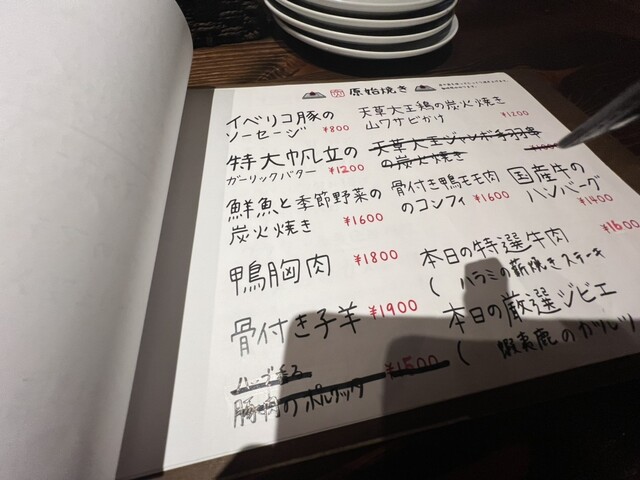 原始焼き
イベリコ豚の
ソーセージ ¥800
天草大王鶏の炭火焼き
山ワサビかけ ¥1200
特大帆立の
ガーリックバター ¥1200
天草大王ジャンボ手羽等
の炭火焼き
鮮魚と季節野菜の
炭火焼き ¥1600
骨付き鴨モモ肉
のコンフィ ¥1600
国産牛の
ハンバーグ
¥1400
鴨胸肉 ¥1800
本日の特選牛肉 ¥1600
( ハラミの薪焼きステーキ
骨付き子羊 ¥1900
本日の厳選ジビエ
( 蝦夷鹿のカツレツ
ハーブ香る
豚肉のポルケッタ ¥1500